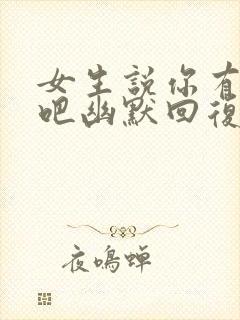 女生説你有
吧幽默回復
夜鳴蟬